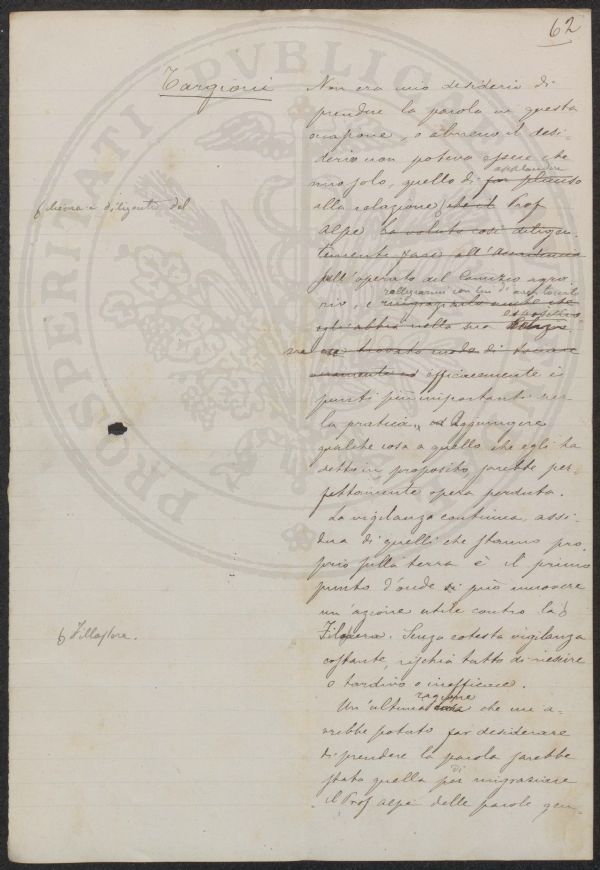 62
Targioni
Non era mio desiderio di
prendere la parola in questa
occasione, o almeno il desi-
derio non poteva essere che
uno solo, quello di far plauso
applaudire
alla relazione che il Prof
chiara e diligente del
Alpe ha voluto così diligen-
temente fare all'
sull'operato del Comizio agra
rio, e ringraziarlo anche che
rallegrarmi con lui di aver toccato
egli abbia nella sua
esposizione
trovato modo di toccare
veramente ed efficacemente i
punti più importanti per
la pratica. Aggiungere
qualche cosa a quello che egli ha
detto in proposito sarebbe per-
fettamente opera perduta.
La vigilanza continua, assi-
dua di quelli che stanno pro
prio sulla terra è il primo
punto d'onde si può muovere
un'azione utile contro la
Filossera. Senza cotesta vigilanza
Fillossera.
costante, rischia tutto di riescire
o tardivo o inefficace.
Un'ultima cosa che mi a-
ragione
vrebbe potuto far desiderare
di prendere la parola sarebbe
stata quella di ringraziare
il Prof Alpe delle parole gen-
PROSPERITATI PVBLICAE